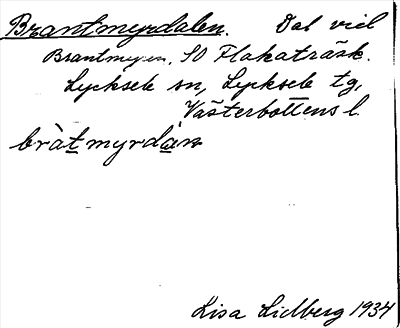 Brantmyrdalen. Dal vid
Brantmyren, SO Flakaträsk.
Lycksele sn, Lycksele tg,
Västerbottens l.
bràt myrdàn
Lisa Lidberg 1934